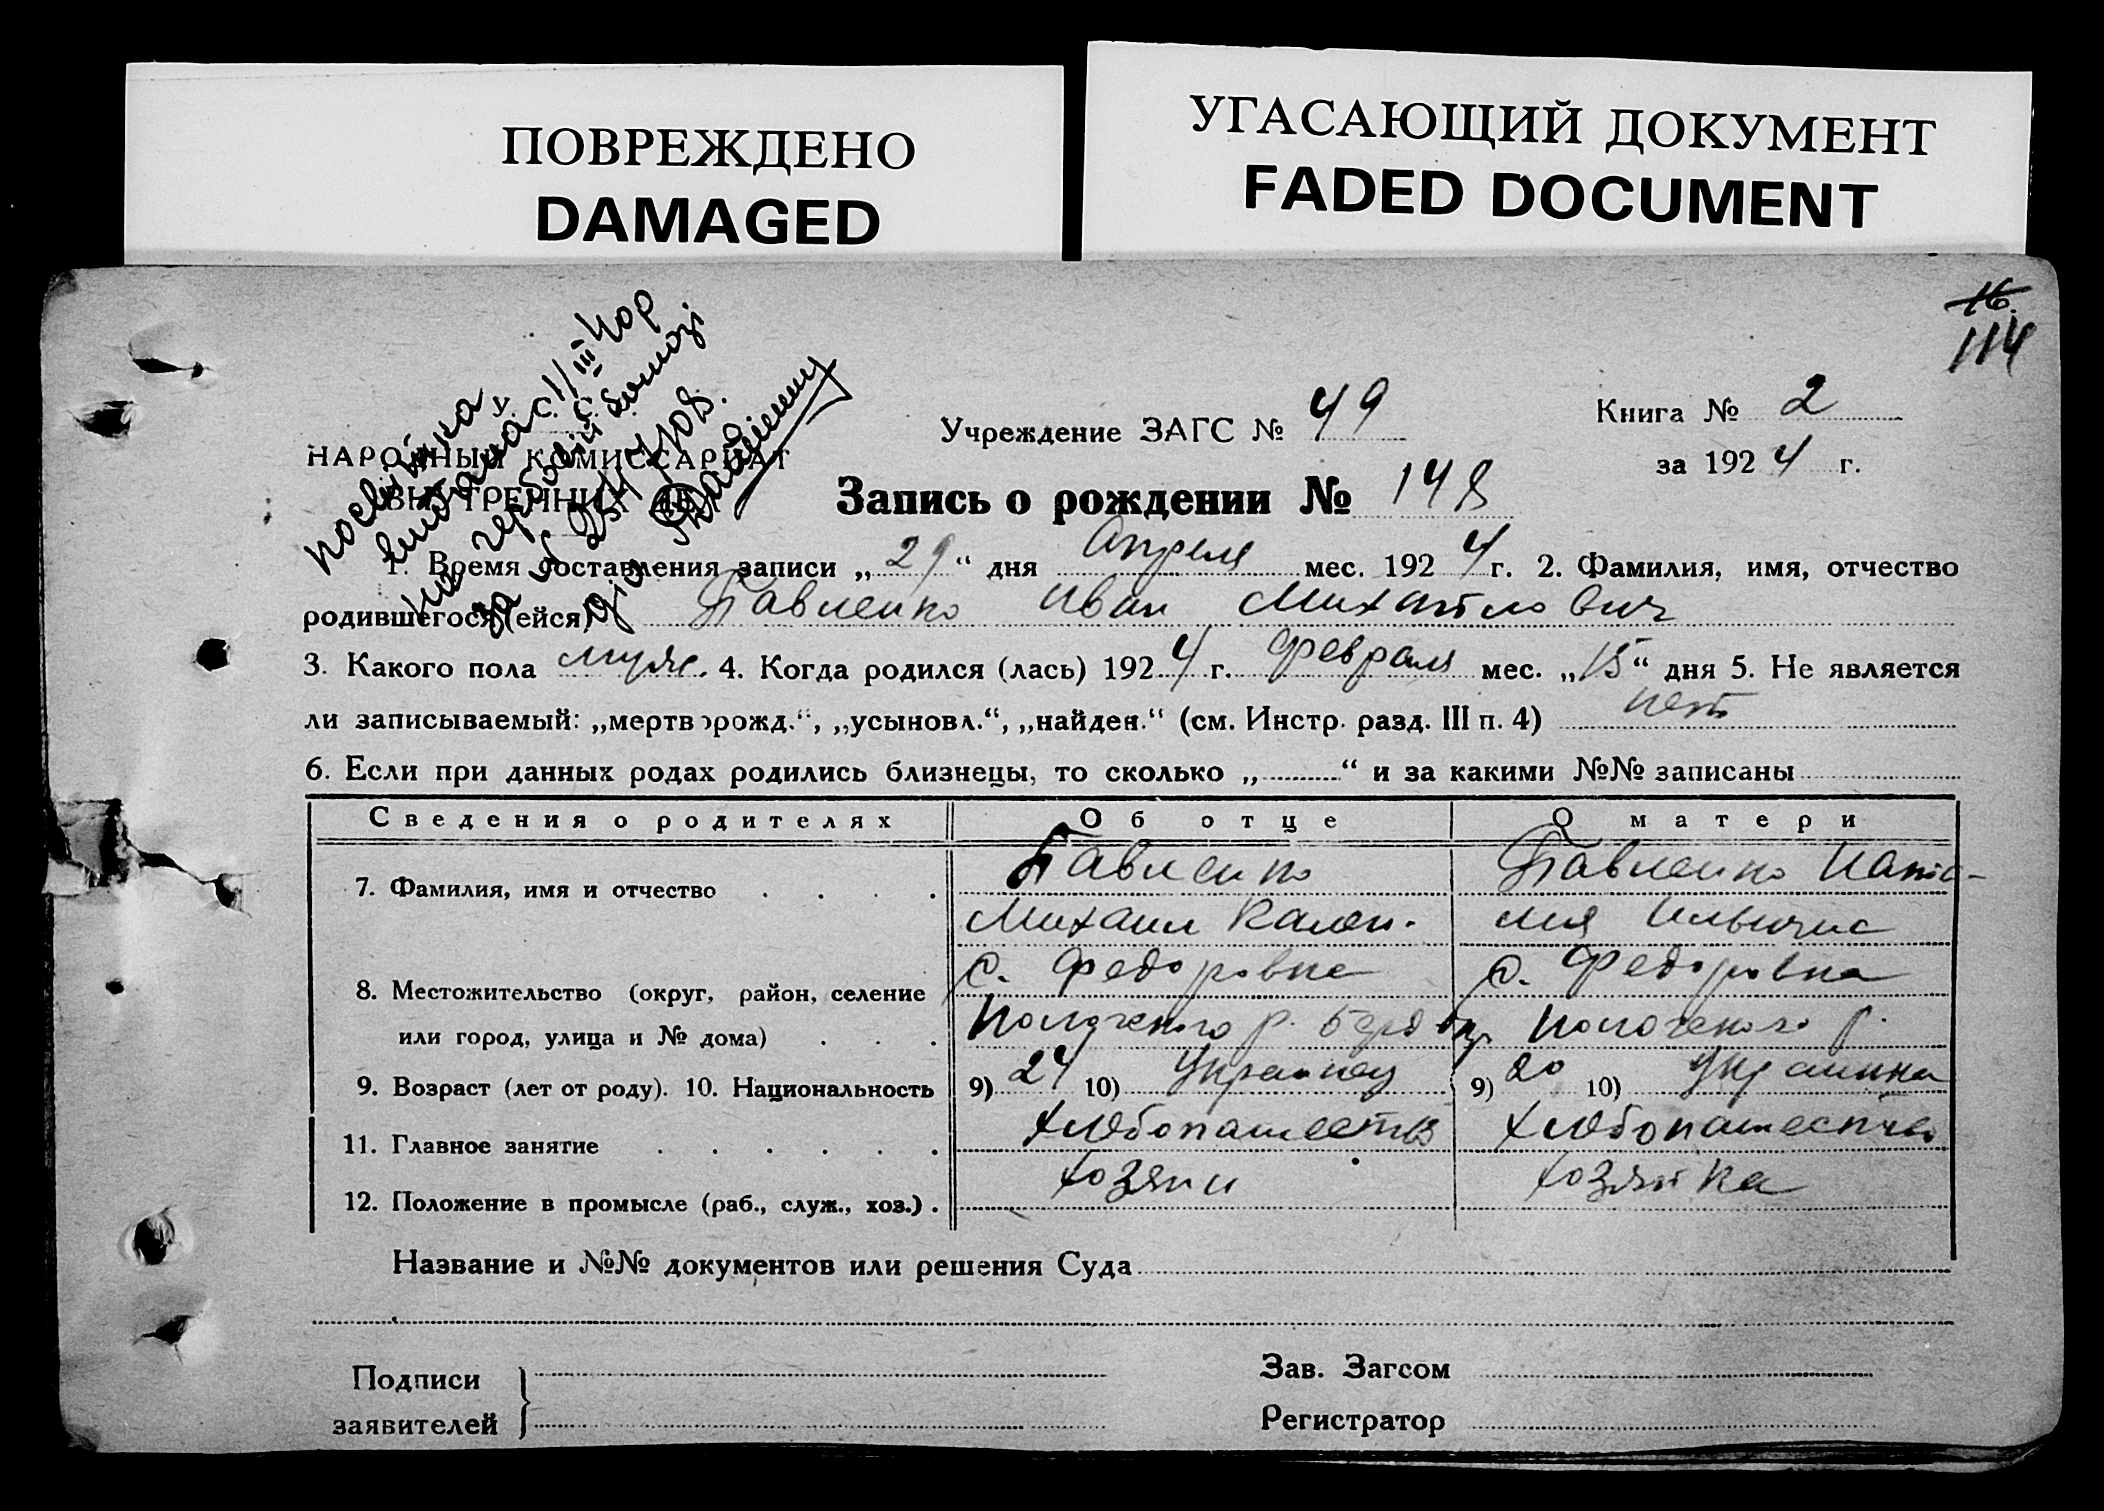 ПОВРЕЖДЕНО
DAMAGED
УГАСАЮЩИЙ ДОКУМЕНТ
FADED DOCUMENT
16.
114
У. С. С.
НАРОДНЫЙ КОМИССАРИАТ
ВНУТРЕННИХ ДЕЛ
Учреждение ЗАГС № 49
Книга № 2
за 1924 г.
Запись о рождении № 148
1. Время составления записи „29“ дня Апреля мес. 1924 г. 2. Фамилия, имя, отчество
родившегося (ейся) Павленко Иван Михайлович
3. Какого пола муж. 4. Когда родился (лась) 1924 г. Февраля мес. „15“ дня 5. Не является
ли записываемый: „мертворожд.“, „усыновл.“, „найден.“ (см. Инстр. разд. III п. 4) нет
6. Если при данных родах родились близнецы, то сколько „ “ и за какими №№ записаны
Сведения о родителях Об отце О матери
7. Фамилия, имя и отчество Павленко Павленко
Михаил
8. Местожительство (округ, район, селение с. Федоровка с. Федоровка
или город, улица и № дома) р. р.
9. Возраст (лет от роду). 10. Национальность 9) 24 10) Украинец 9) 20 10) Украинка
11. Главное занятие хлебопашество хлебопашество
12. Положение в промысле (раб., служ., хоз.) хозяин хозяйка
Название и №№ документов или решения Суда
Подписи
заявителей
Зав. Загсом
Регистратор